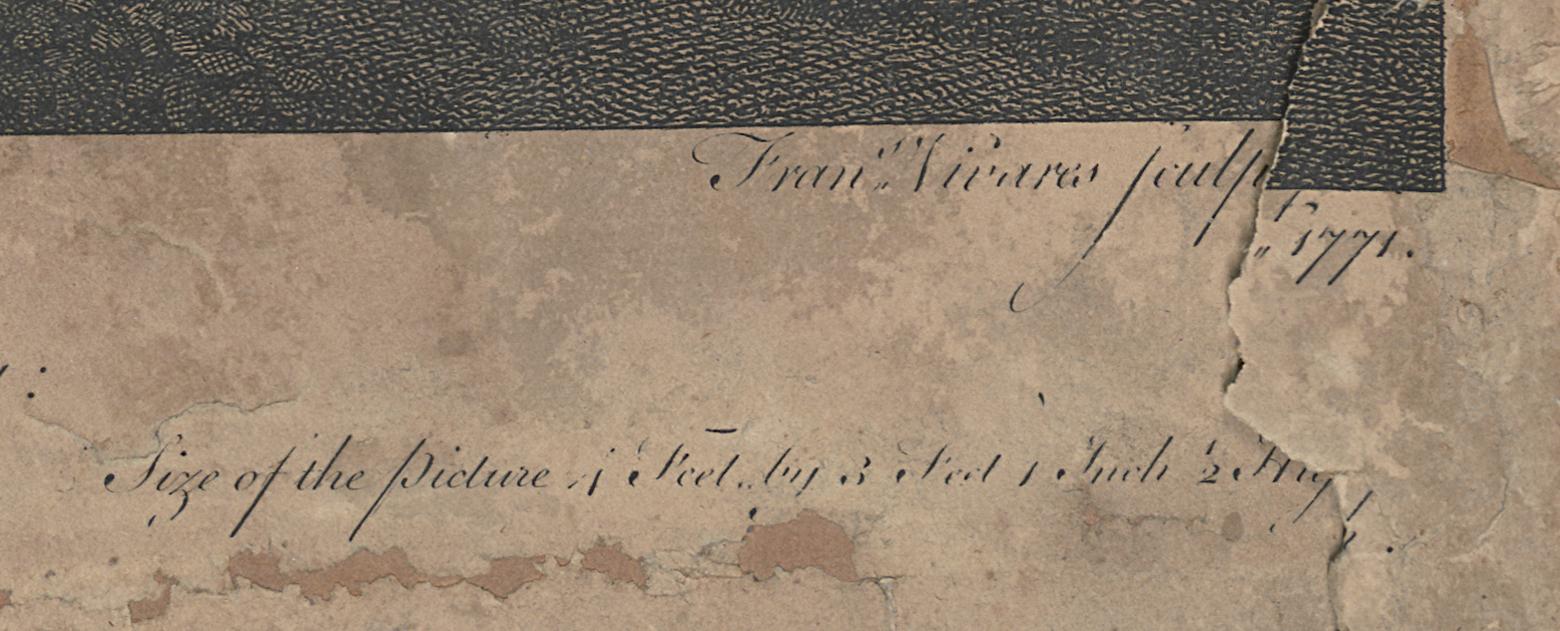 Fran.s Vivares sculp.t
„ 1771.
Size of the Picture 4 Feet „ by 3 Feet 1 Inch ½